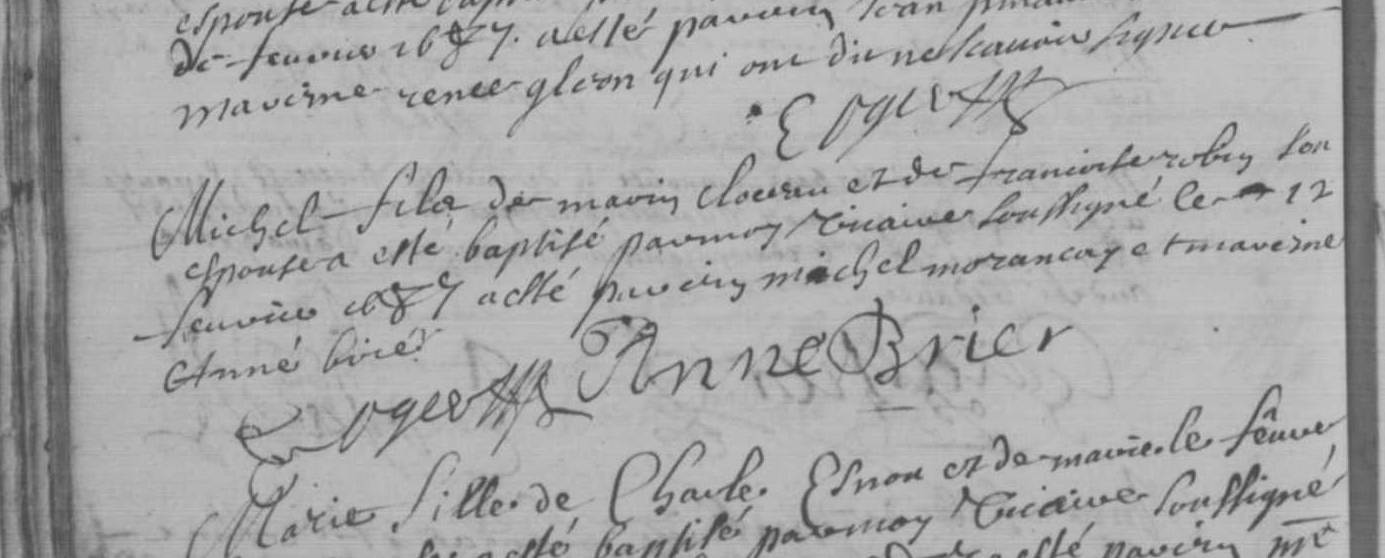 espouse a esté
de feuvier 1687. a esté parein Jean
mareine renee gleron qui ont dit ne scavoir signer
Michel fils de marin clocereu et de francoise robin son
espouse a esté baptisé par moy vicaire soussigné le 12
feuvier 1687 a esté parein michel morançay et mareine
Anne birè
Anne Brier
Marie fille de Charle Esnou et de marie le feuvre
a esté baptisé par moy vicaire soussigné
esté parein mre